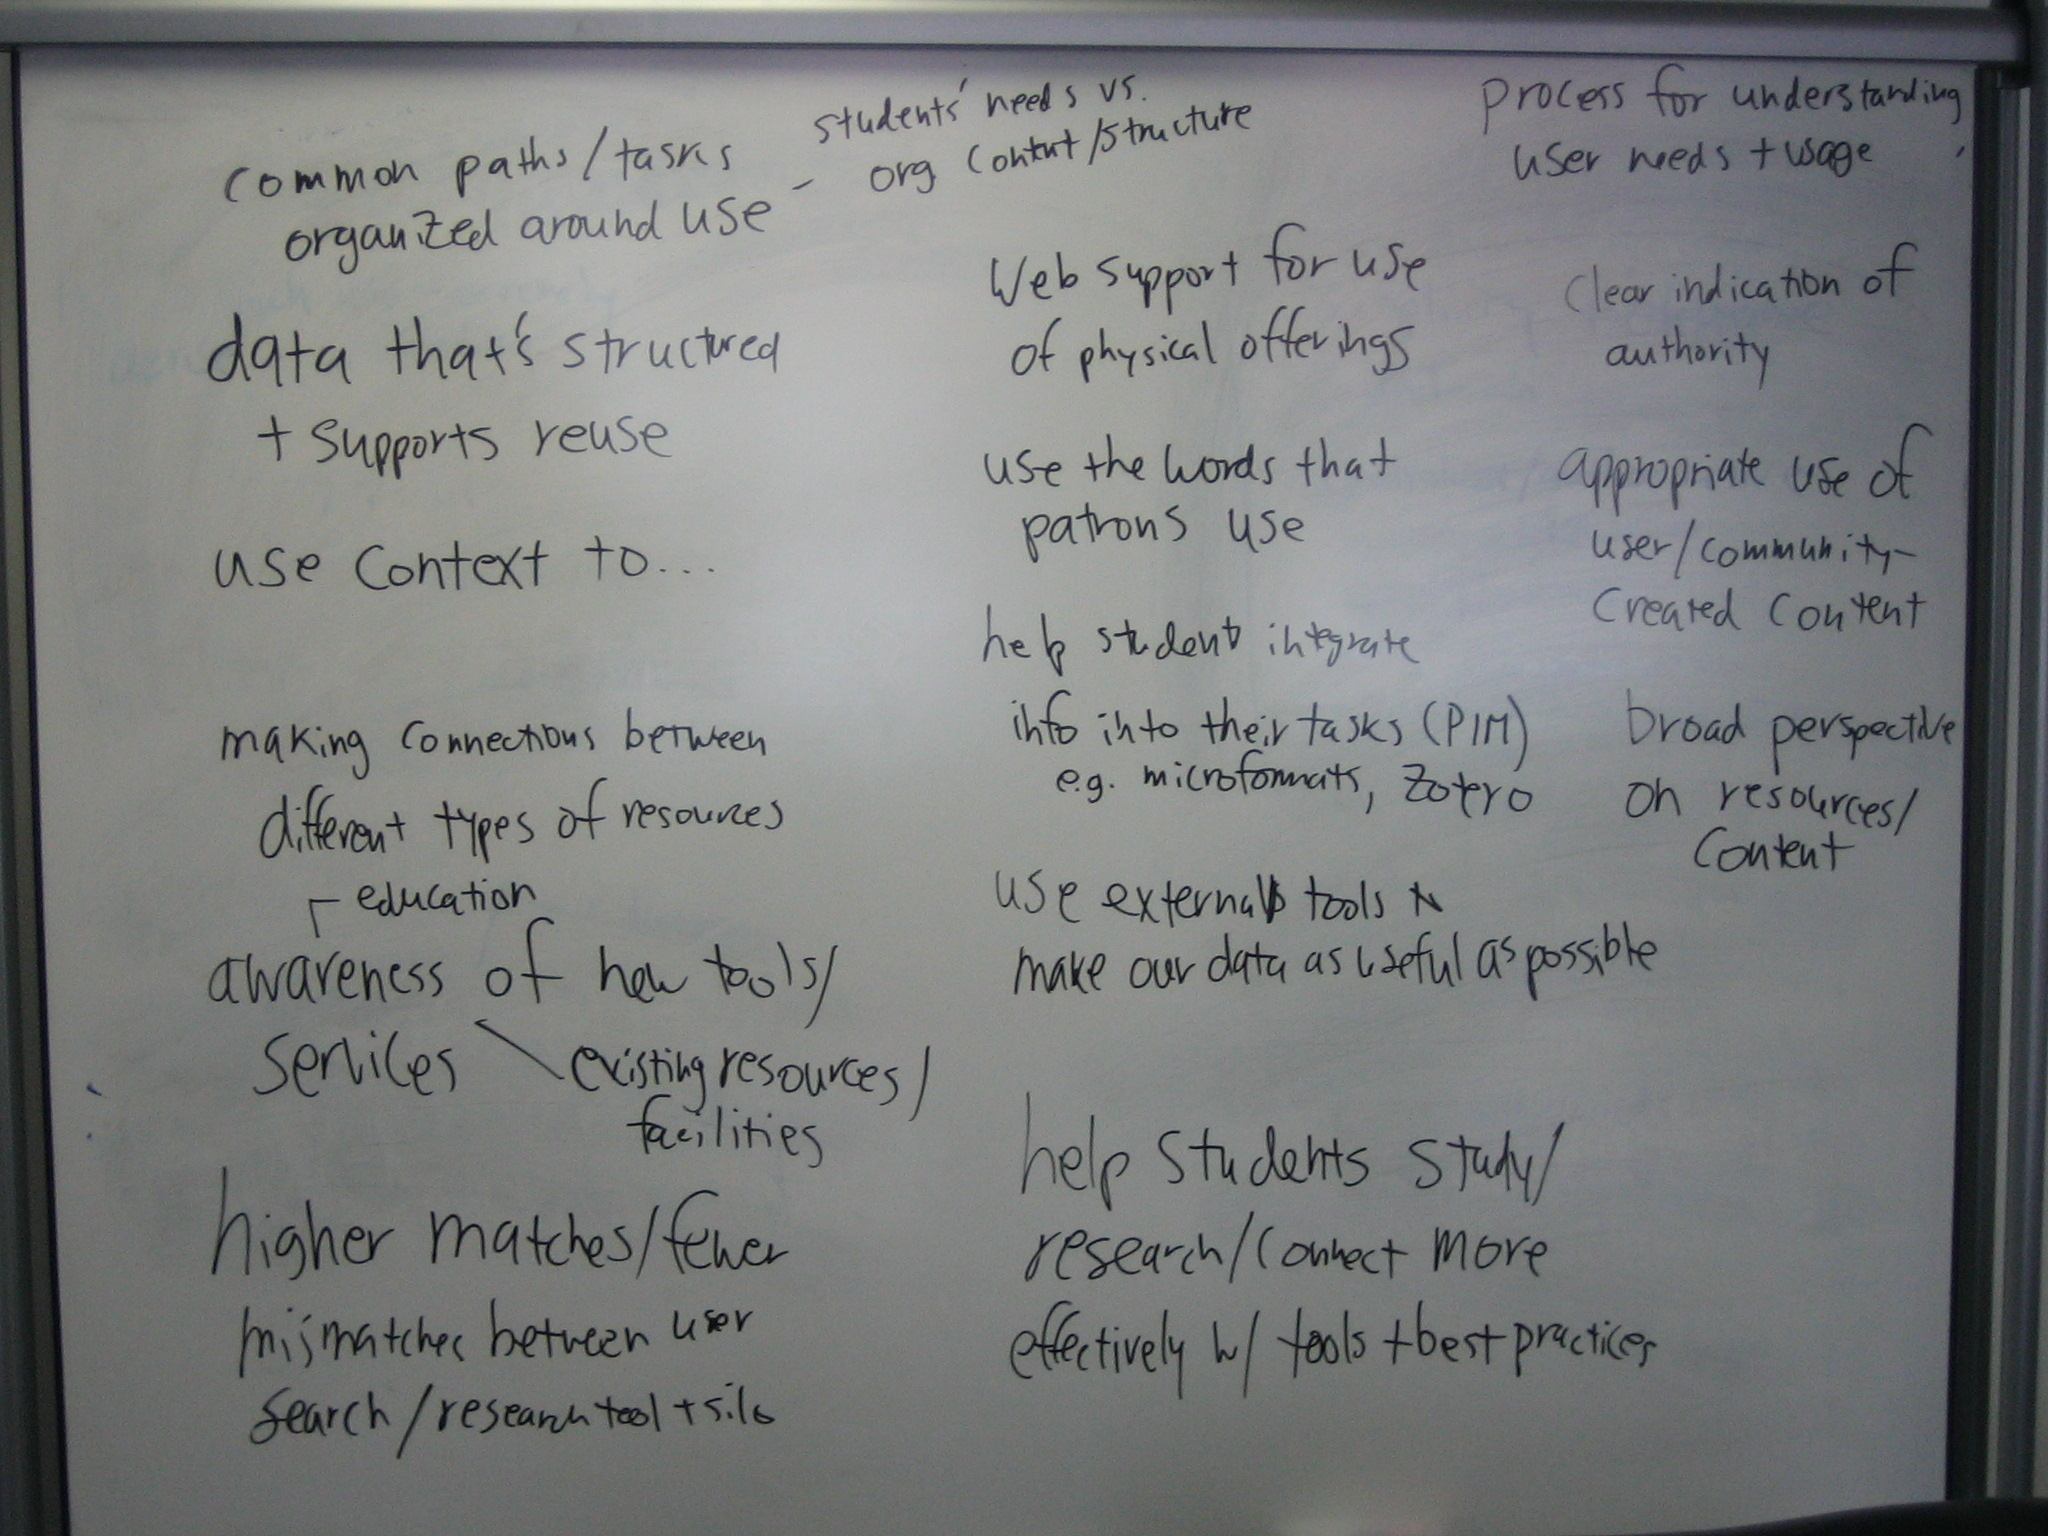 common paths/tasks
organized around use
- students' needs vs.
org content/structure
data that's structured
+ supports reuse
use context to...
making connections between
different types of resources
education
awareness of new tools/
services
existing resources/
facilities
higher matches/fewer
mismatches between user
search/research tool + silo
Web support for use
of physical offerings
use the words that
patrons use
help student integrate
info into their tasks (PIM)
e.g. microformats, Zotero
use external tools to
make our data as useful as possible
help students study/
research/connect more
effectively w/ tools + best practices
process for understanding
user needs + usage
clear indication of
authority
appropriate use of
user/community-
created content
broad perspective
on resources/
content